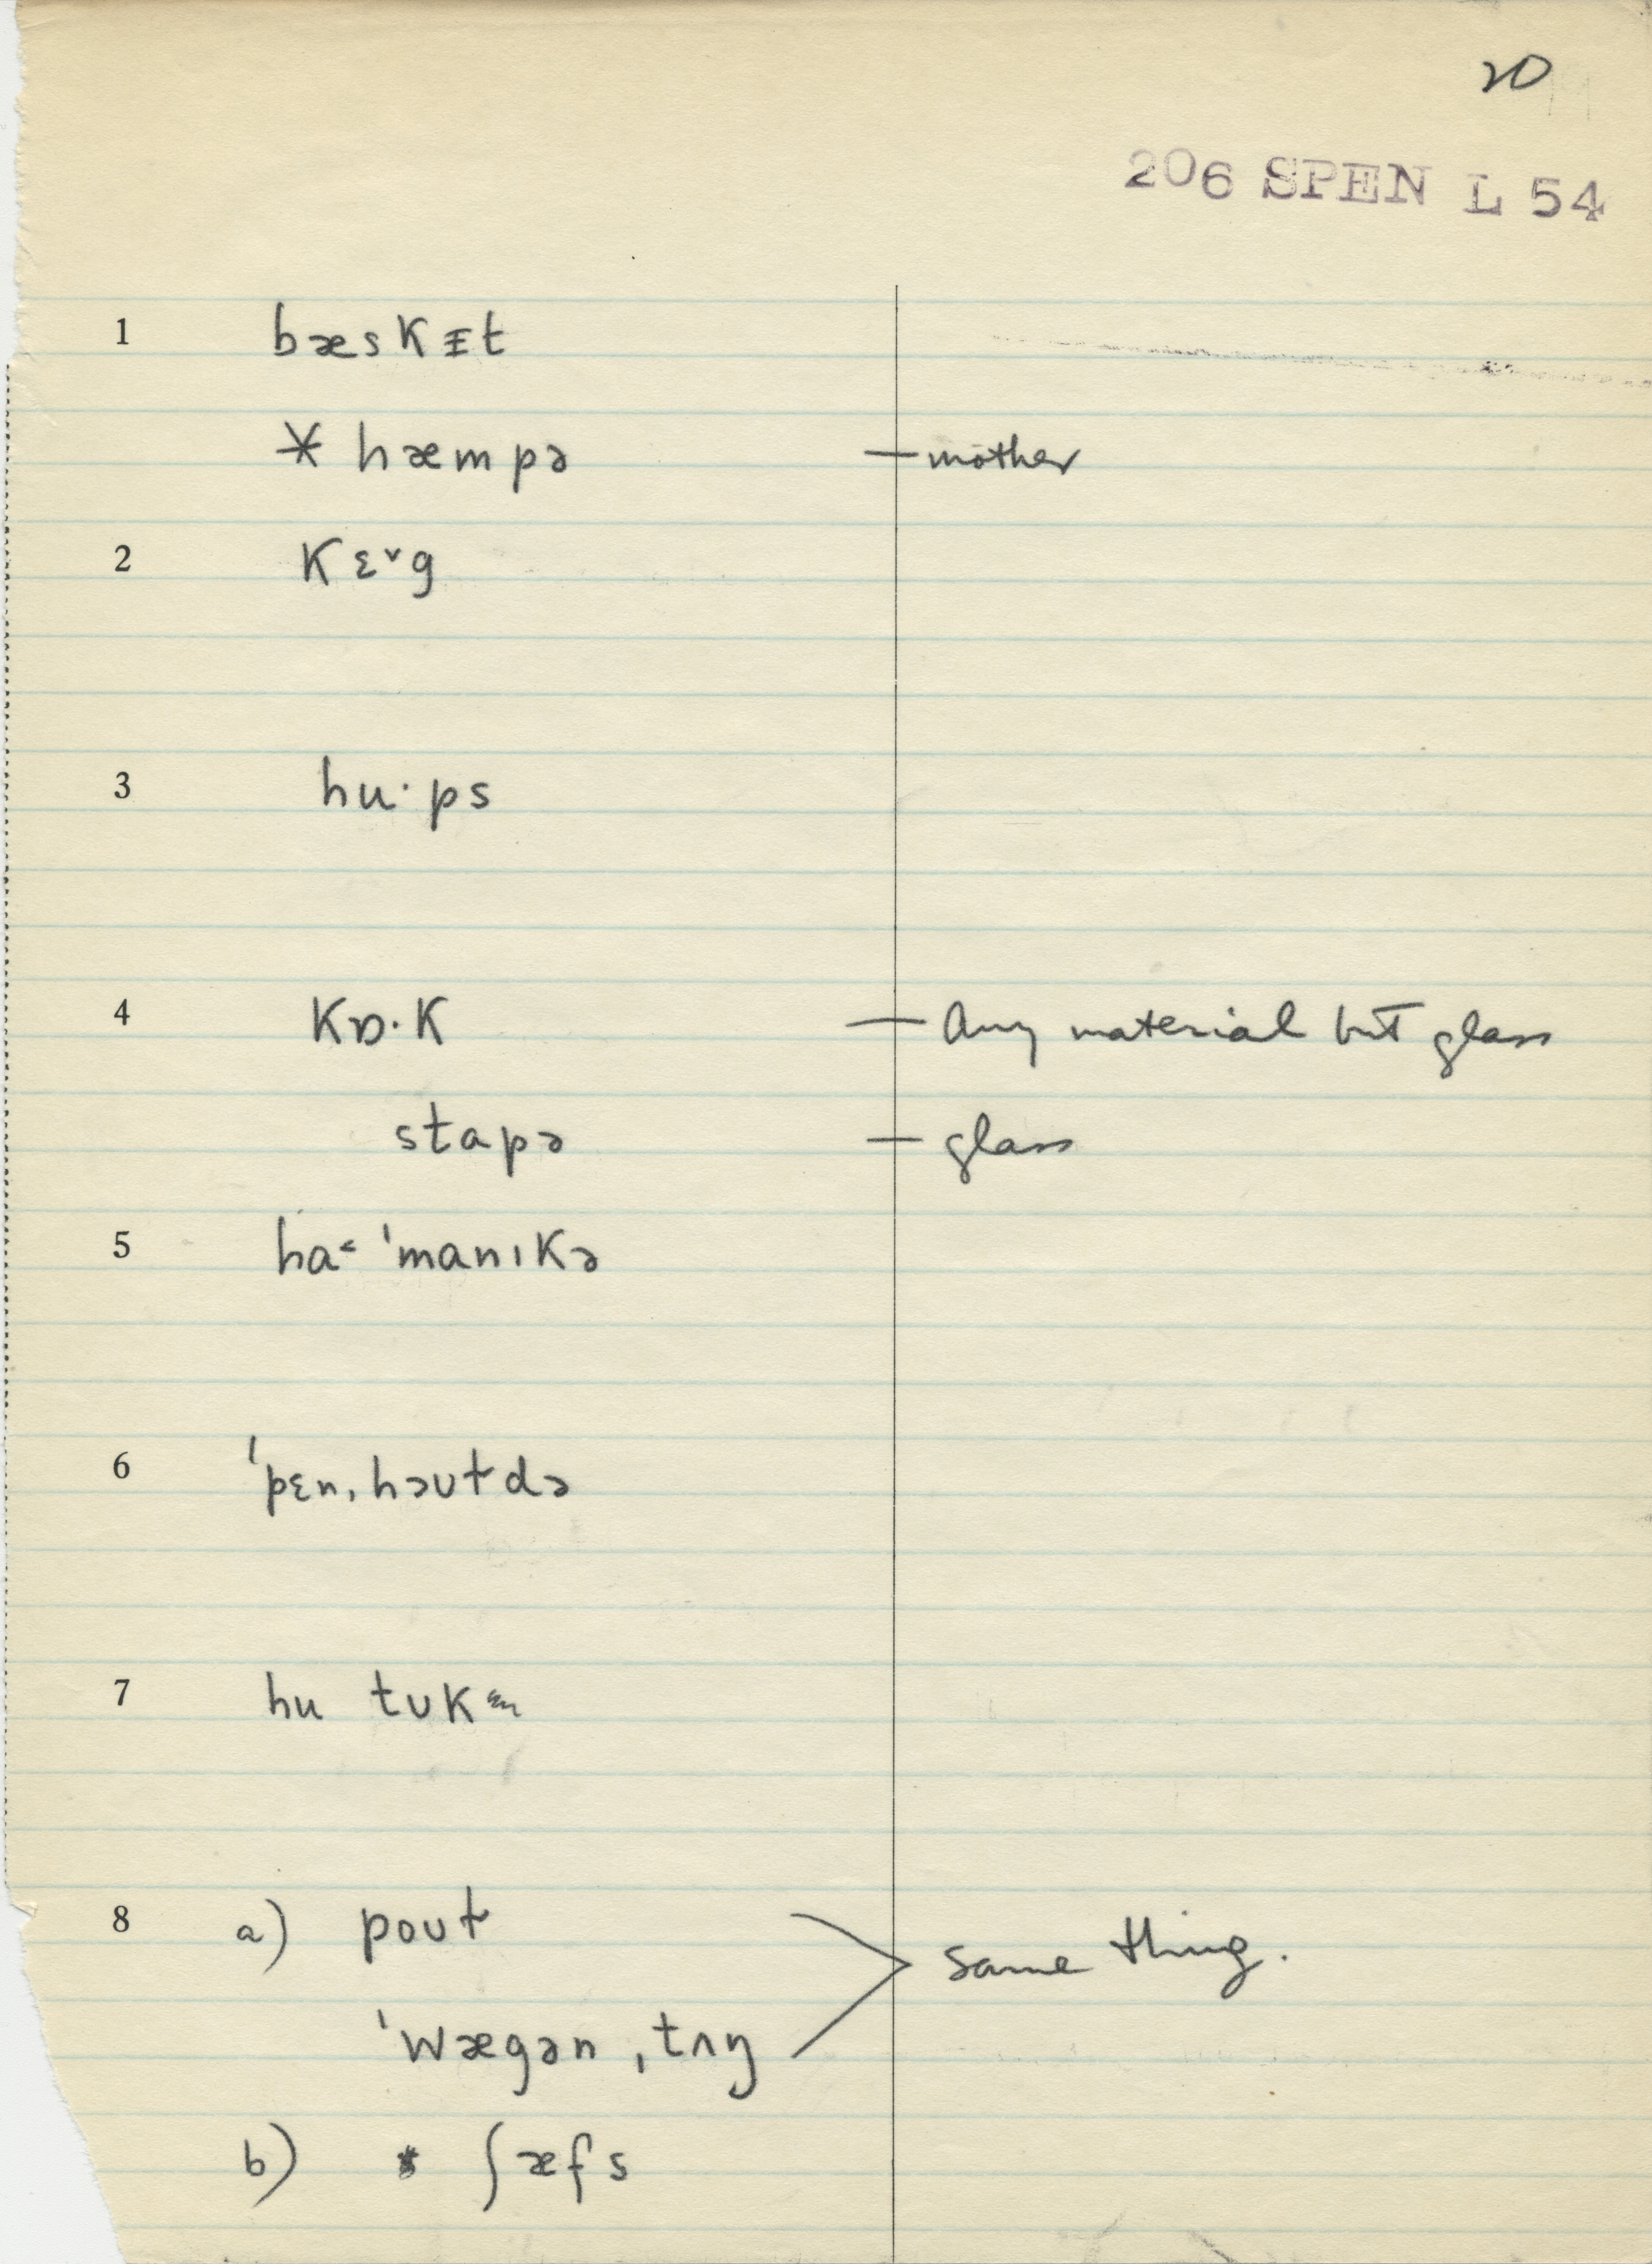 20
206 SPEN L 54
1 bæskɪt
* hæmpə — mother
2 kɛˇg
3 hu·ps
4 kɒ·k — Any material but glass
stapə — glass
5 ha˂ ˈmanɪkə
6 ˈpɛnˌhəʊtdə
7 hu tʊk
8 a) poʊt
ˈwægənˌtʌŋ
same thing.
b) * ʃæfs